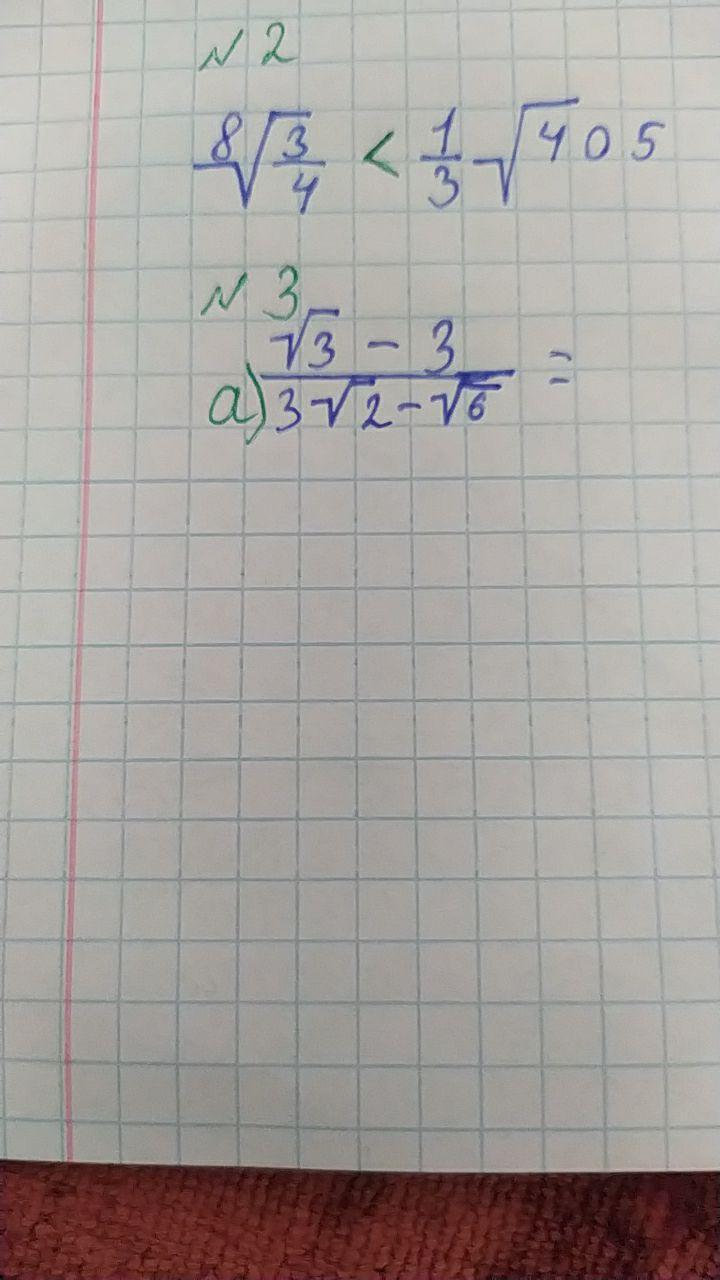 N 2
8√3/4 < 1/3 √405
N 3
а) (√3 - 3)/(3√2 - √6) =